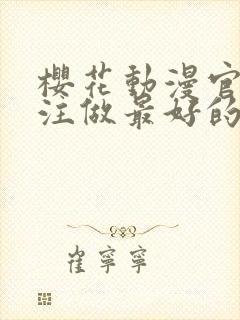 櫻花動漫官
注做最好的
崔寧寧